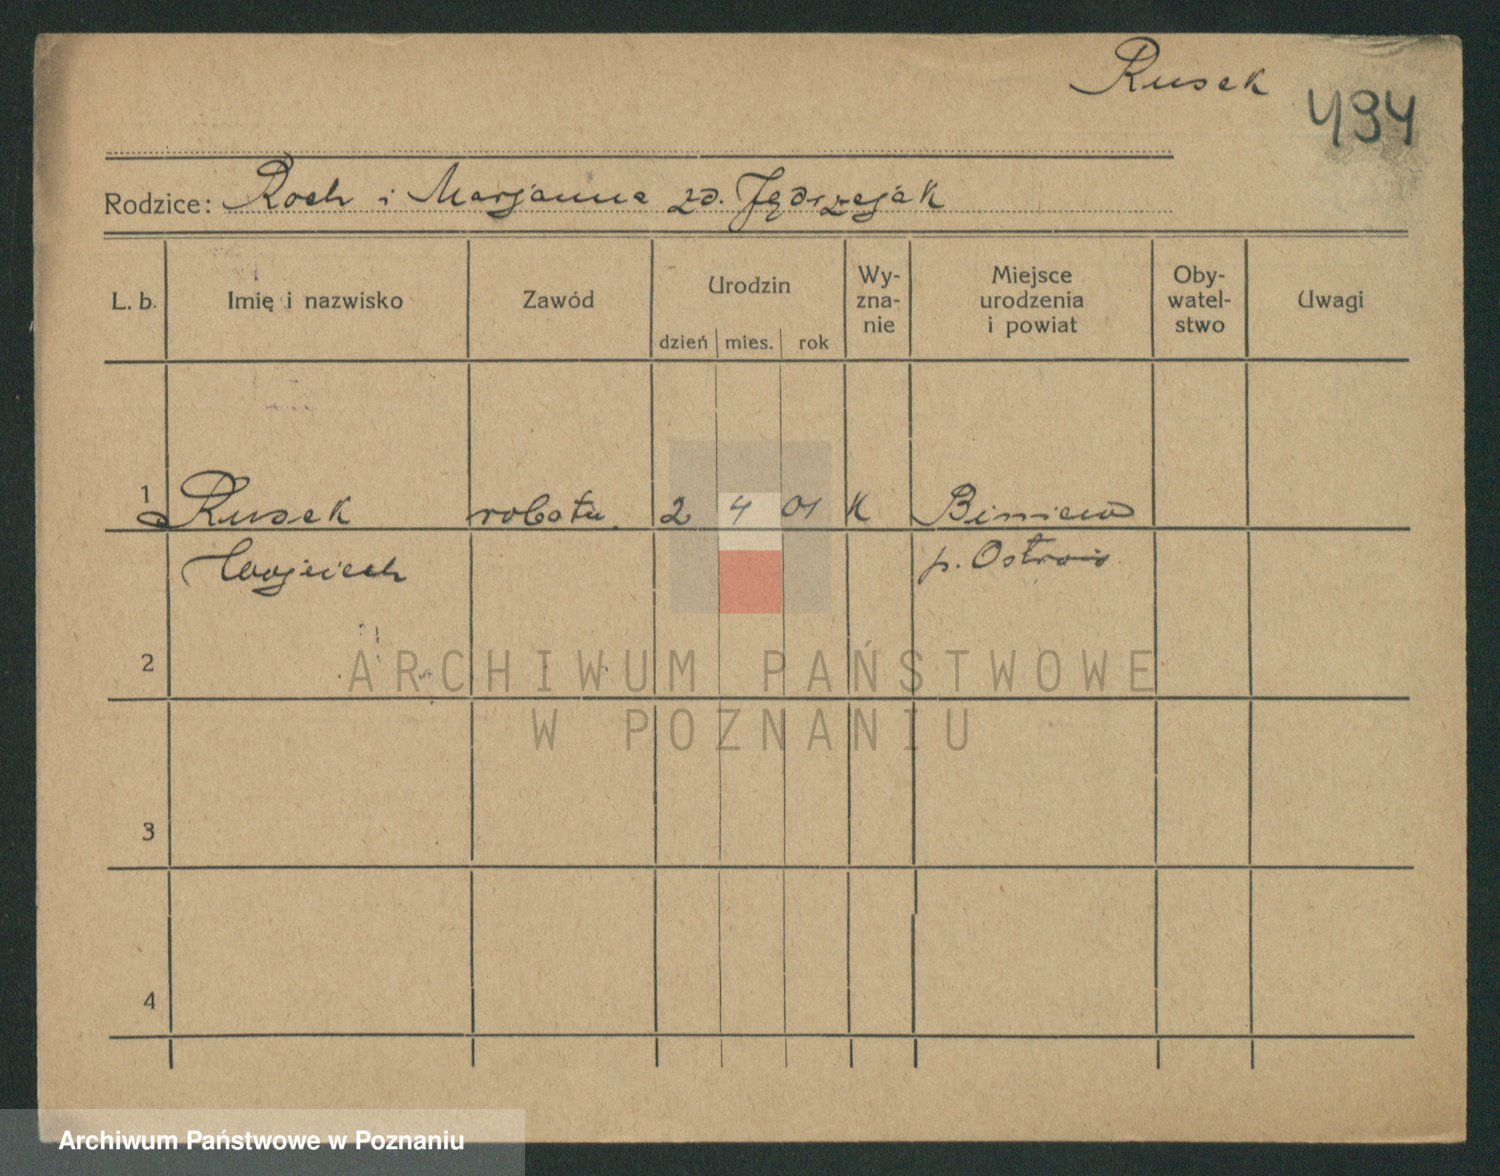 Rusek
494
Rodzice: Roch i Marjanna zd. Jędrzejak
L. b.
Imię i nazwisko
Zawód
Urodzin
dzień mies. rok
Wy-
zna-
nie
Miejsce
urodzenia
i powiat
Oby-
watel-
stwo
Uwagi
1 Rusek robotn. 2 4 01 K Biniew
Wojciech p. Ostrów
2
3
4
ARCHIWUM PAŃSTWOWE
W POZNANIU
Archiwum Państwowe w Poznaniu